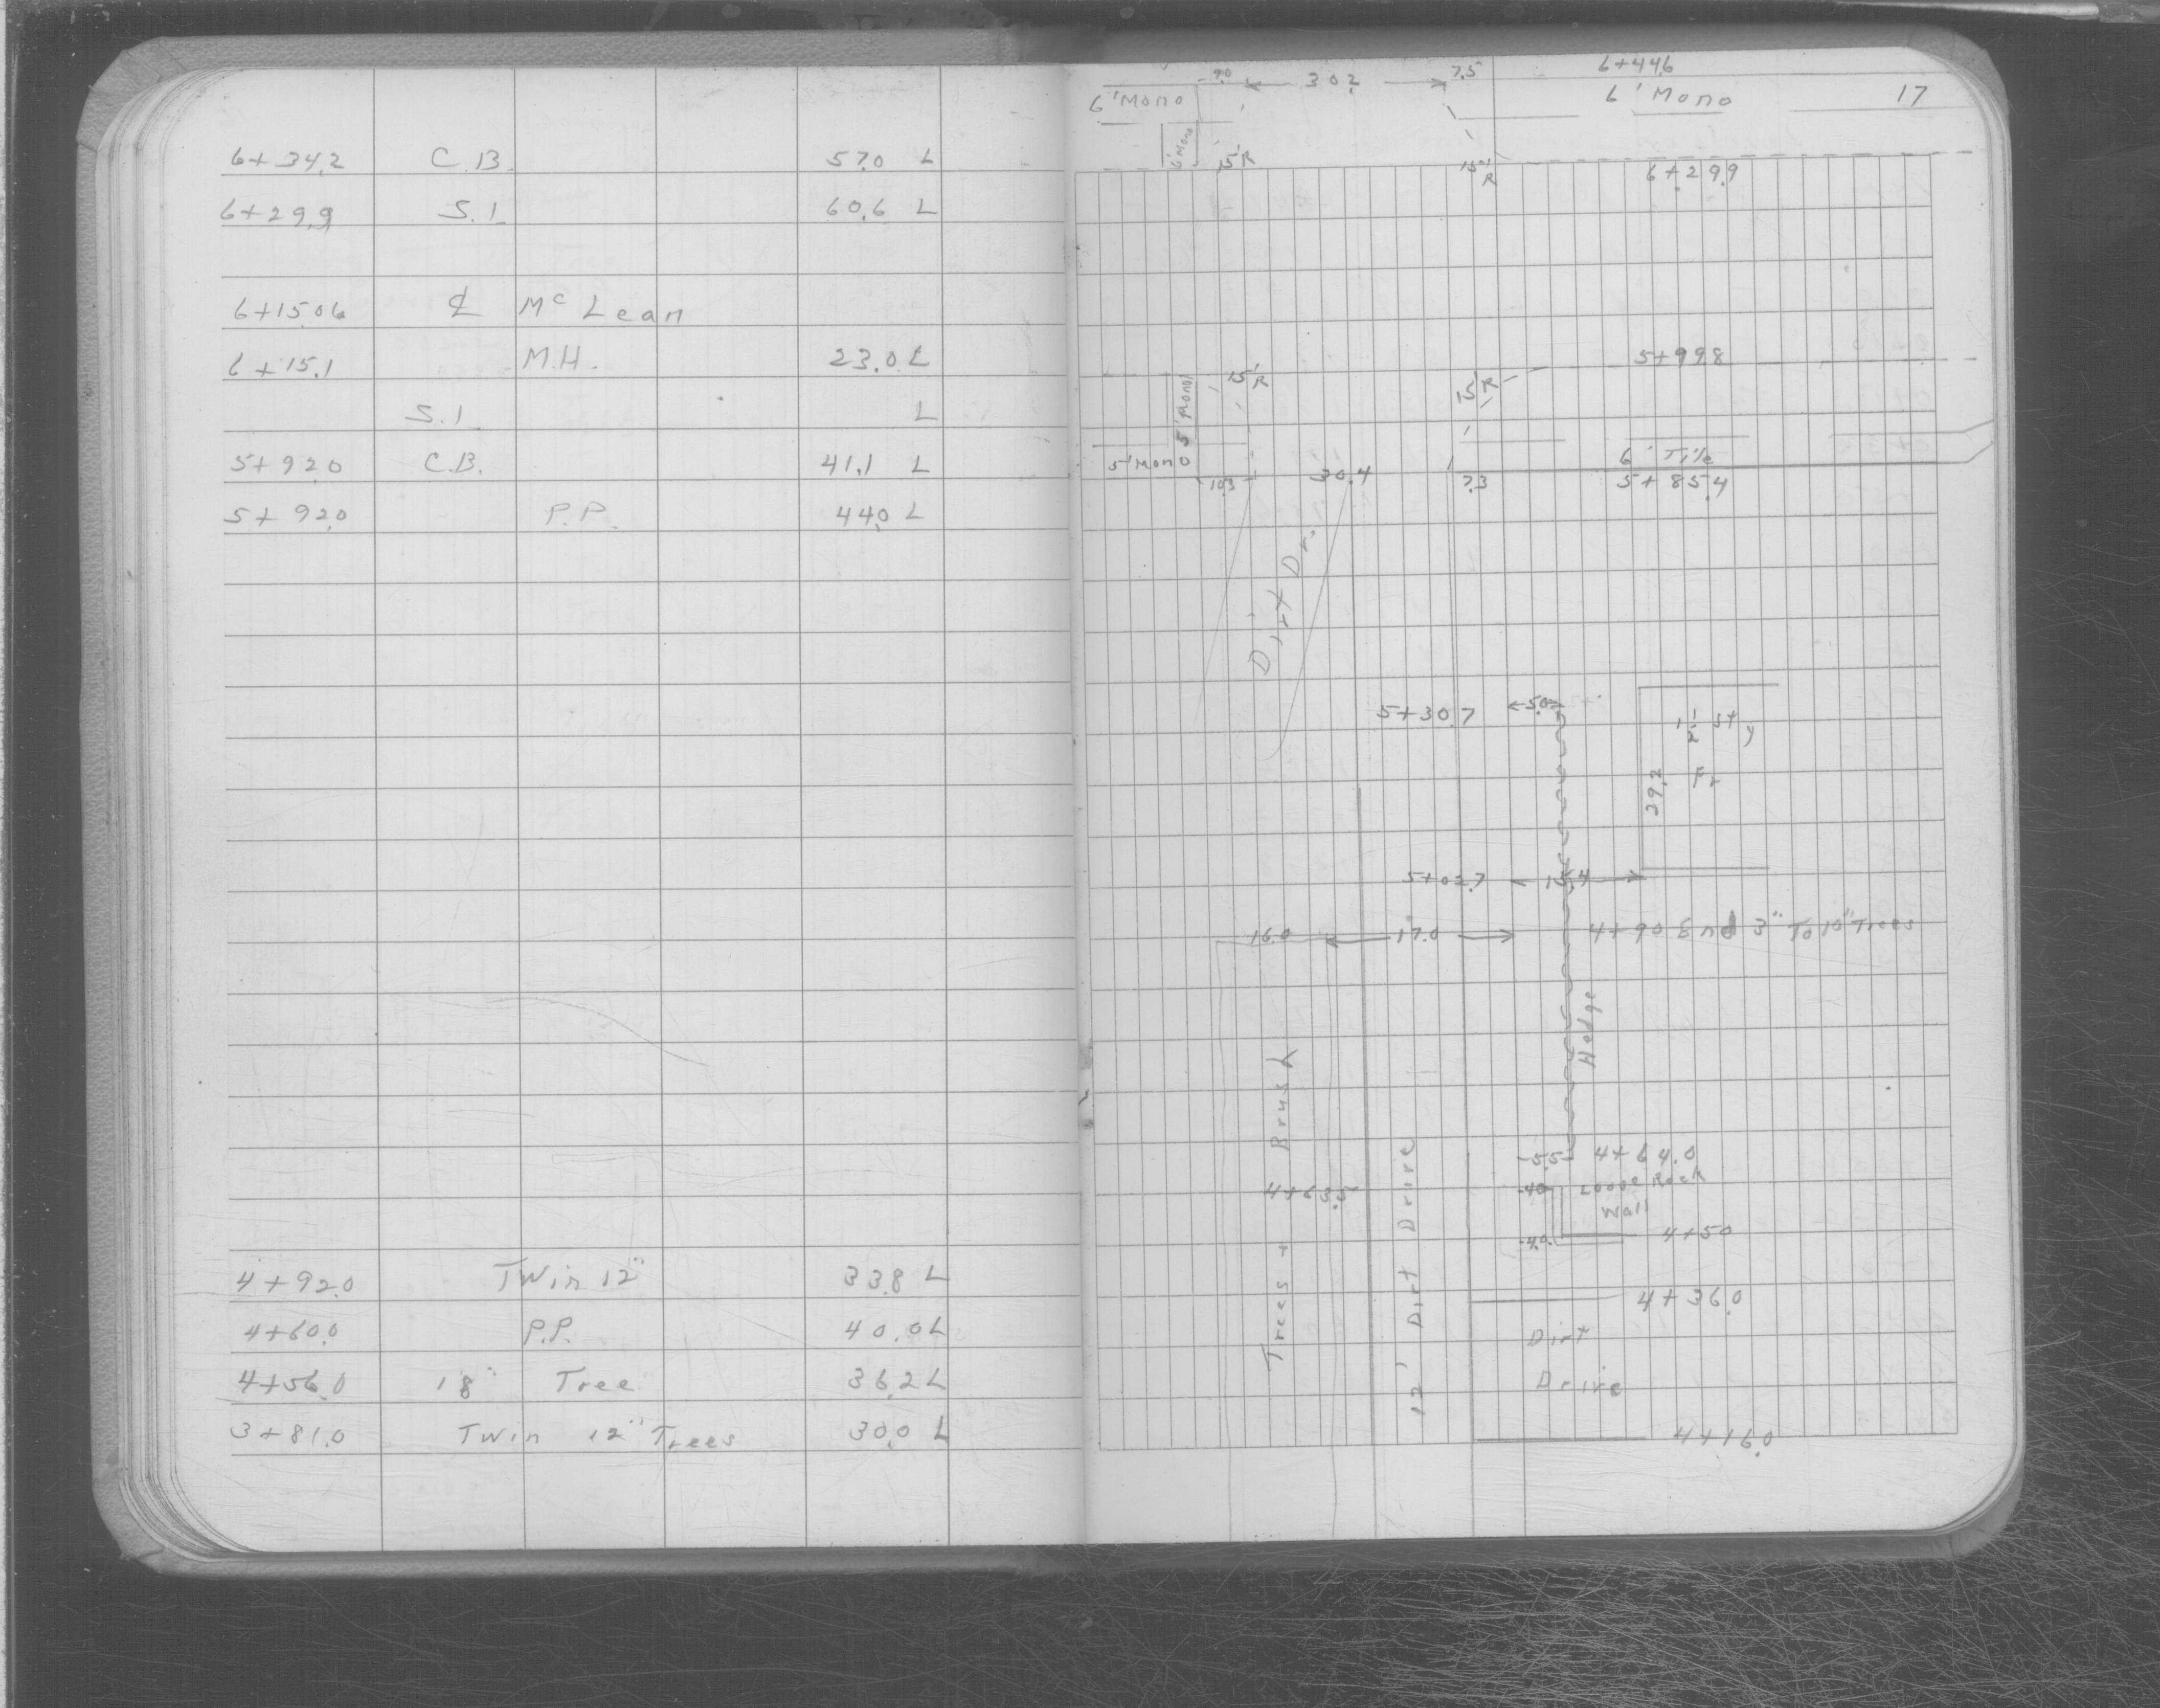 6+34.2 C.B. 57.0 L
6+29.9 S.I. 60.6 L
6+15.06 ℄ McLean
6+15.1 M.H. 23.0 L
S.I. L
5+92.0 C.B. 41.1 L
5+92.0 P.P. 44.0 L
4+92.0 Twin 12" 33.8 L
4+60.0 P.P. 40.0 L
4+56.0 18" Tree 36.2 L
3+81.0 Twin 12" Trees 30.0 L
9.0 30.2 7.5 6+44.6
6' Mono 6' Mono 17
6' Mono
15'R 15'R 6+29.9
5+99.8
15'R 15'R
5' Mono
5' Mono 6' Tile
10.3 30.4 7.3 5+85.4
Dirt Dr.
5+30.7 5.0
1 1/2 Sty
Fr
29.2
5+02.7 15.4
16.0 17.0 4+90 End 3" To 10" Trees
Hedge
Trees + Brush
12' Dirt Drive
5.5 4+64.0
4+63.5 4.0 Loose Rock
Wall
4.0 4+50
4+36.0
Dirt
Drive
4+16.0